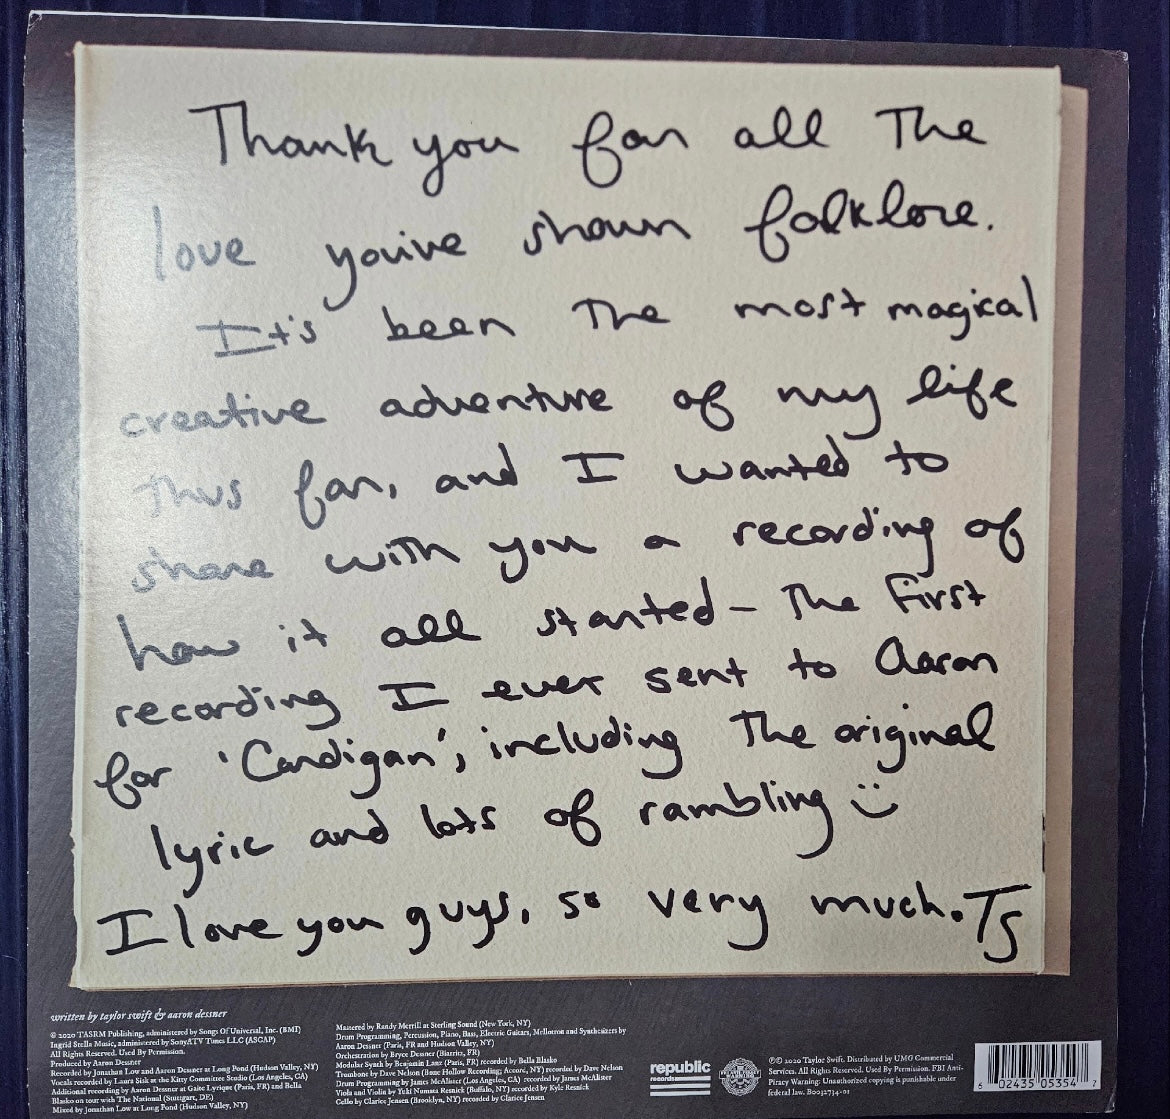 Thank you for all The
love you've shown folklore.
It's been The most magical
creative adventure of my life
Thus far, and I wanted to
share with you a recording of
how it all started - The first
recording I ever sent to Aaron
for 'Cardigan', including The original
lyric and lots of rambling :)
I love you guys, so very much. TS
written by taylor swift & aaron dessner
© 2020 TASRM Publishing, administered by Songs Of Universal, Inc. (BMI)
Ingrid Stella Music, administered by Sony/ATV Tunes LLC (ASCAP)
All Rights Reserved. Used By Permission.
Produced by Aaron Dessner
Recorded by Jonathan Low and Aaron Dessner at Long Pond (Hudson Valley, NY)
Vocals recorded by Laura Sisk at the Kitty Committee Studio (Los Angeles, CA)
Additional recording by Aaron Dessner at Gaite Lyrique (Paris, FR) and Bella
Blasko on tour with The National (Stuttgart, DE)
Mixed by Jonathan Low at Long Pond (Hudson Valley, NY)
Mastered by Randy Merrill at Sterling Sound (New York, NY)
Drum Programming, Percussion, Piano, Bass, Electric Guitars, Mellotron and Synthesizers by
Aaron Dessner (Paris, FR and Hudson Valley, NY)
Orchestration by Bryce Dessner (Biarritz, FR)
Modular Synth by Benjamin Lanz (Paris, FR) recorded by Bella Blasko
Trombone by Dave Nelson (Home Hollow Recording; Accord, NY) recorded by Dave Nelson
Drum Programming by James McAlister (Los Angeles, CA) recorded by James McAlister
Viola and Violin by Yuki Numata Resnick (Buffalo, NY) recorded by Kyle Resnick
Cello by Clarice Jensen (Brooklyn, NY) recorded by Clarice Jensen
republic
records
℗© 2020 Taylor Swift. Distributed by UMG Commercial
Services. All Rights Reserved. Used By Permission. FBI Anti-
Piracy Warning: Unauthorized copying is punishable under
federal law. B0032734-01
6 02435 05354 7